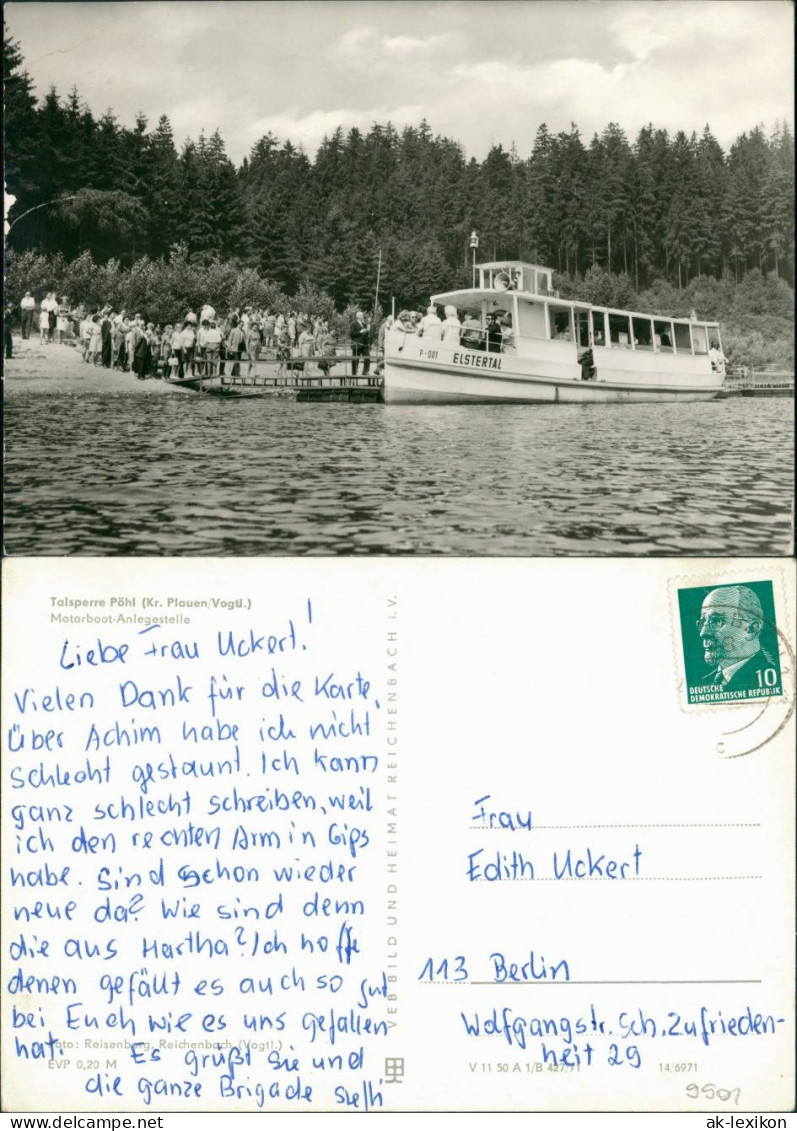 P-001 ELSTERTAL
Talsperre Pöhl (Kr. Plauen/Vogtl.)
Motorboot-Anlegestelle
Liebe Frau Uckert!
Vielen Dank für die Karte,
Über Achim habe ich nicht
schlecht gestaunt. Ich kann
ganz schlecht schreiben, weil
ich den rechten Arm in Gips
habe. Sind schon wieder
neue da? Wie sind denn
die aus Hartha? Ich hoffe
denen gefällt es auch so gut
bei Euch wie es uns gefallen
hat.
Es grüßt Sie und
die ganze Brigade
Foto: Reisenberg, Reichenbach (Vogtl.)
EVP 0,20 M
VEB BILD UND HEIMAT REICHENBACH I.V.
10
DEUTSCHE
DEMOKRATISCHE REPUBLIK
Frau
Edith Uckert
113 Berlin
Wolfgangstr. Sch. Zufrieden-
heit 29
V 11 50 A 1/B 427/71 14/6971
9901
ak-lexikon.com